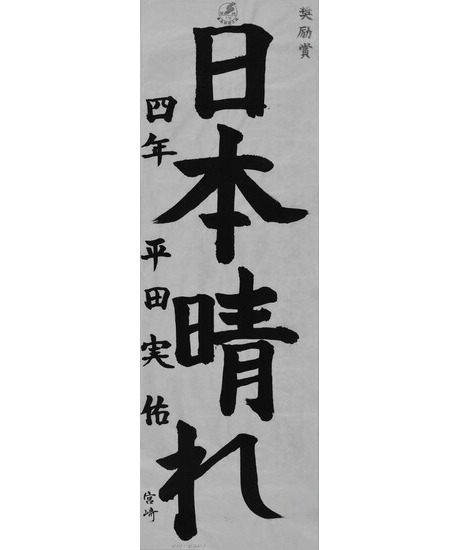 奨励賞
日本晴れ
四年 平田実佑
宮崎